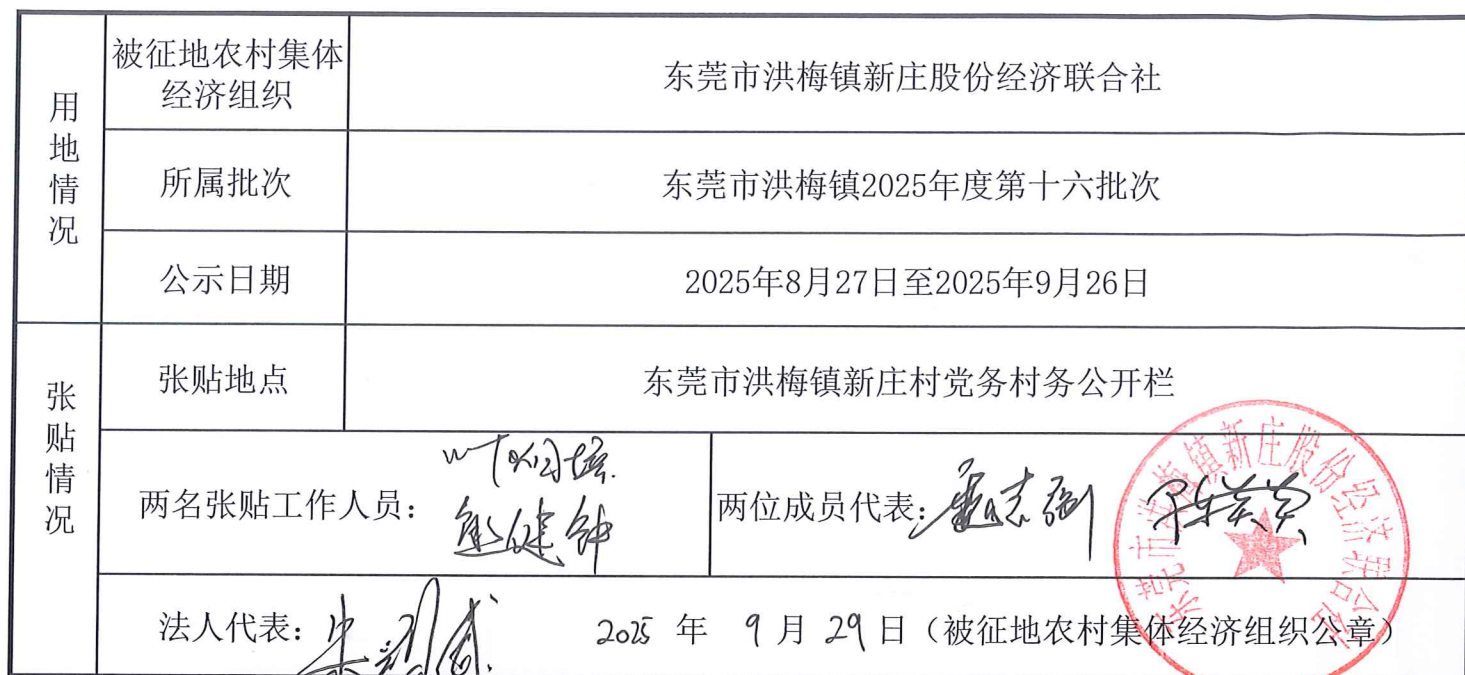 用地情况
被征地农村集体
经济组织
东莞市洪梅镇新庄股份经济联合社
所属批次
东莞市洪梅镇2025年度第十六批次
公示日期
2025年8月27日至2025年9月26日
张贴情况
张贴地点
东莞市洪梅镇新庄村党务村务公开栏
两名张贴工作人员：
两位成员代表：
法人代表： 2025 年 9 月 29 日（被征地农村集体经济组织公章）
东莞市洪梅镇新庄股份经济联合社